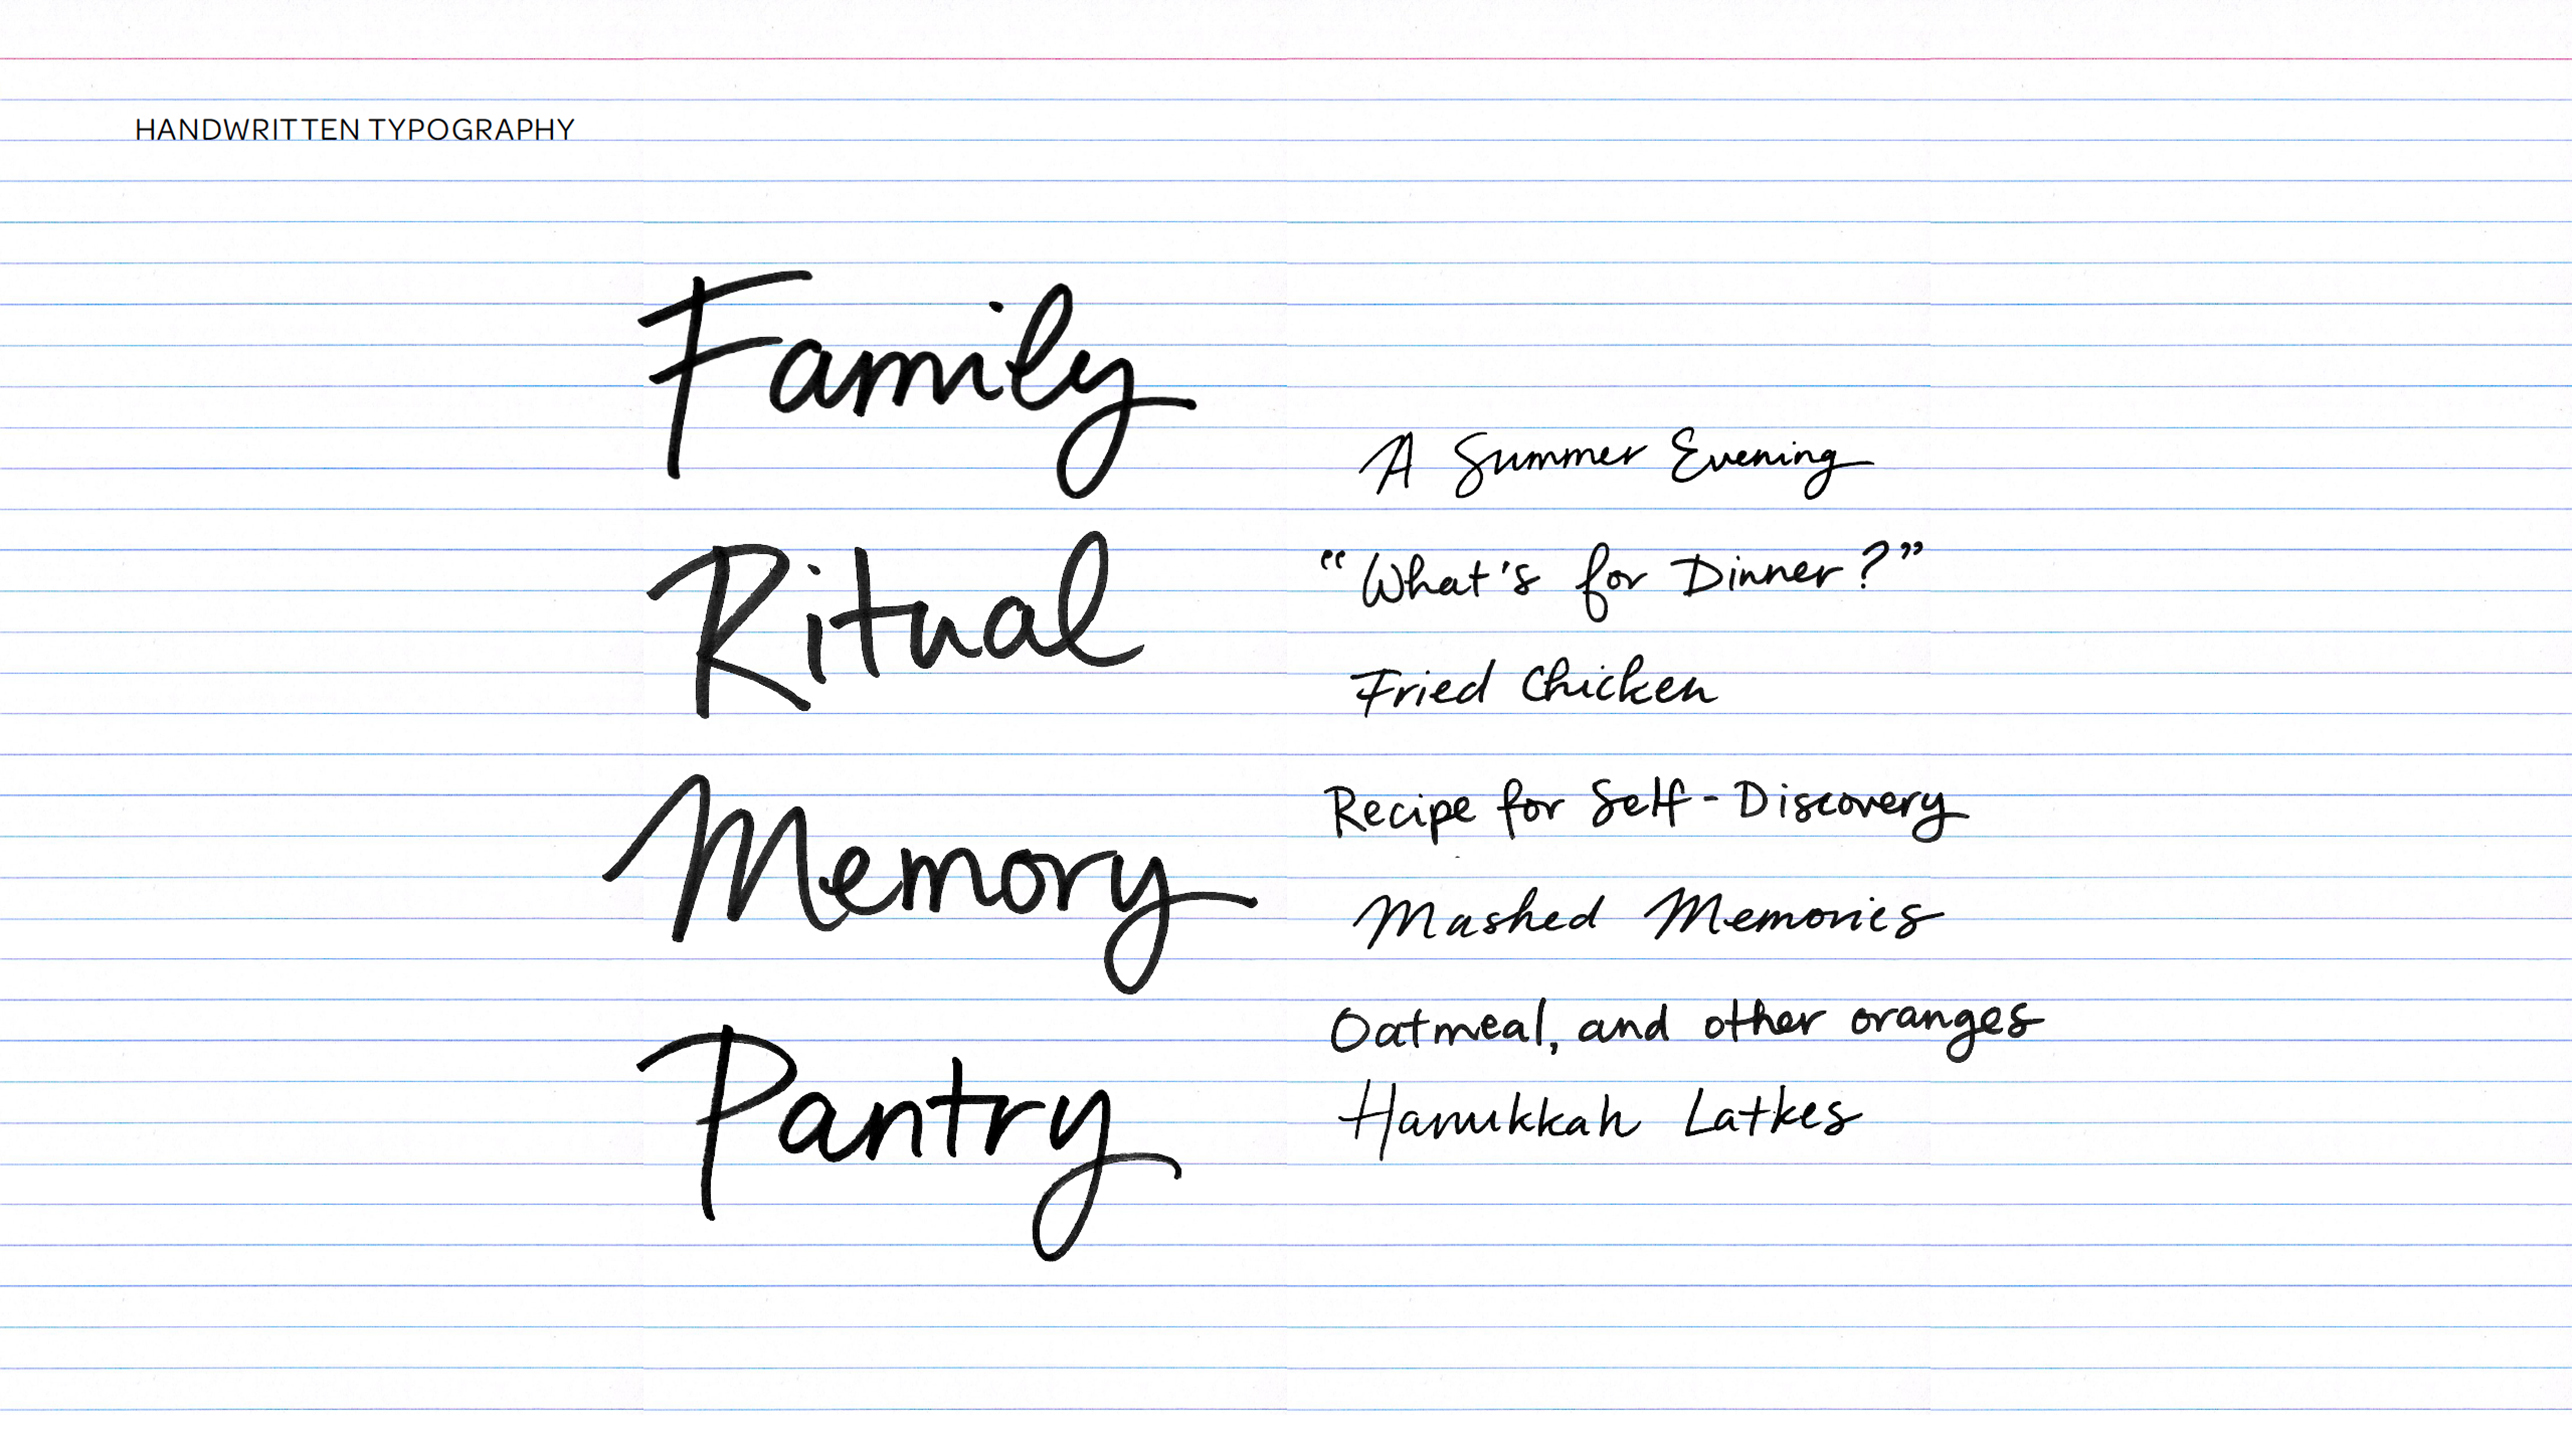 HANDWRITTEN TYPOGRAPHY
Family
Ritual
Memory
Pantry
A Summer Evening
“What's for Dinner?”
Fried Chicken
Recipe for Self-Discovery
Mashed Memories
Oatmeal, and other oranges
Hanukkah Latkes